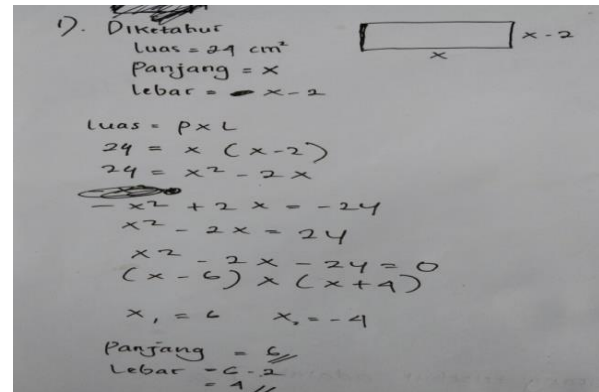 1). Diketahui
Luas = 24 cm²
Panjang = x
lebar = x - 2
x - 2
x
luas = P x L
24 = x (x-2)
24 = x² - 2x
- x² + 2x = -24
x² - 2x = 24
x² - 2x - 24 = 0
(x - 6) x (x + 4)
x₁ = 6 x₂ = -4
Panjang = 6
Lebar = 6 - 2
= 4